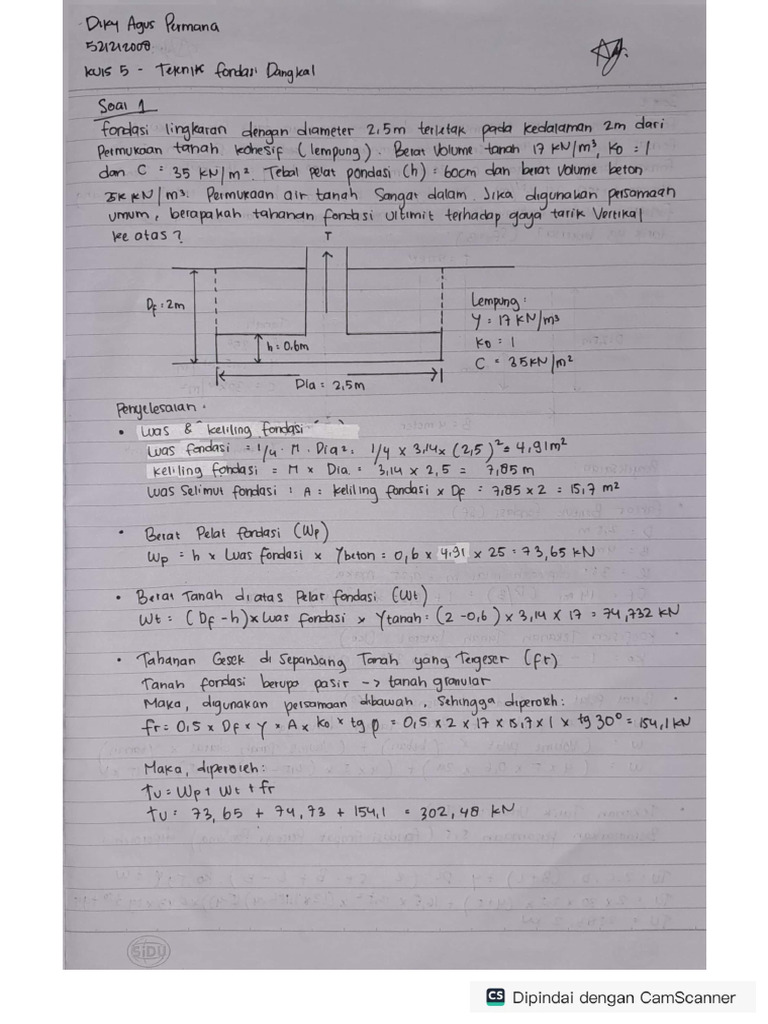 Diky Agus Permana
521212008
KUIS 5 - Teknik fondasi Dangkal
Soal 1
fondasi lingkaran dengan diameter 2,5m terletak pada kedalaman 2m dari
Permukaan tanah kohesif (lempung). Berat Volume tanah 17 kN/m³, Ko = 1
dan C = 35 kN/m². Tebal pelat pondasi (h) = 60cm dan berat volume beton
25 kN/m³. Permukaan air tanah Sangat dalam. Jika digunakan persamaan
umum, berapakah tahanan fondasi ultimit terhadap gaya tarik Vertikal
ke atas?
T
Df = 2m
h = 0,6m
Dia = 2,5m
Lempung:
γ = 17 kN/m³
Ko = 1
C = 35 kN/m²
Penyelesaian.
• Luas & keliling fondasi
Luas fondasi = 1/4 . π . Dia² = 1/4 x 3,14 x (2,5)² = 4,91 m²
keliling fondasi = π x Dia = 3,14 x 2,5 = 7,85 m
Luas Selimut fondasi : A = keliling fondasi x Df = 7,85 x 2 = 15,7 m²
• Berat Pelat fondasi (Wp)
Wp = h x Luas fondasi x γ beton = 0,6 x 4,91 x 25 = 73,65 kN
• Berat Tanah diatas Pelat fondasi (Wt)
Wt = (Df - h) x Luas fondasi x γ tanah = (2 - 0,6) x 3,14 x 17 = 74,732 kN
• Tahanan Gesek di Sepanjang Tanah yang Tergeser (fr)
Tanah fondasi berupa pasir -> tanah granular
Maka, digunakan persamaan dibawah, Sehingga diperoleh:
fr = 0,5 x Df x γ x A x Ko x tg φ = 0,5 x 2 x 17 x 15,7 x 1 x tg 30° = 154,1 kN
Maka, diperoleh:
Tu = Wp + Wt + fr
Tu = 73,65 + 74,73 + 154,1 = 302,48 kN
SiDU
CS Dipindai dengan CamScanner